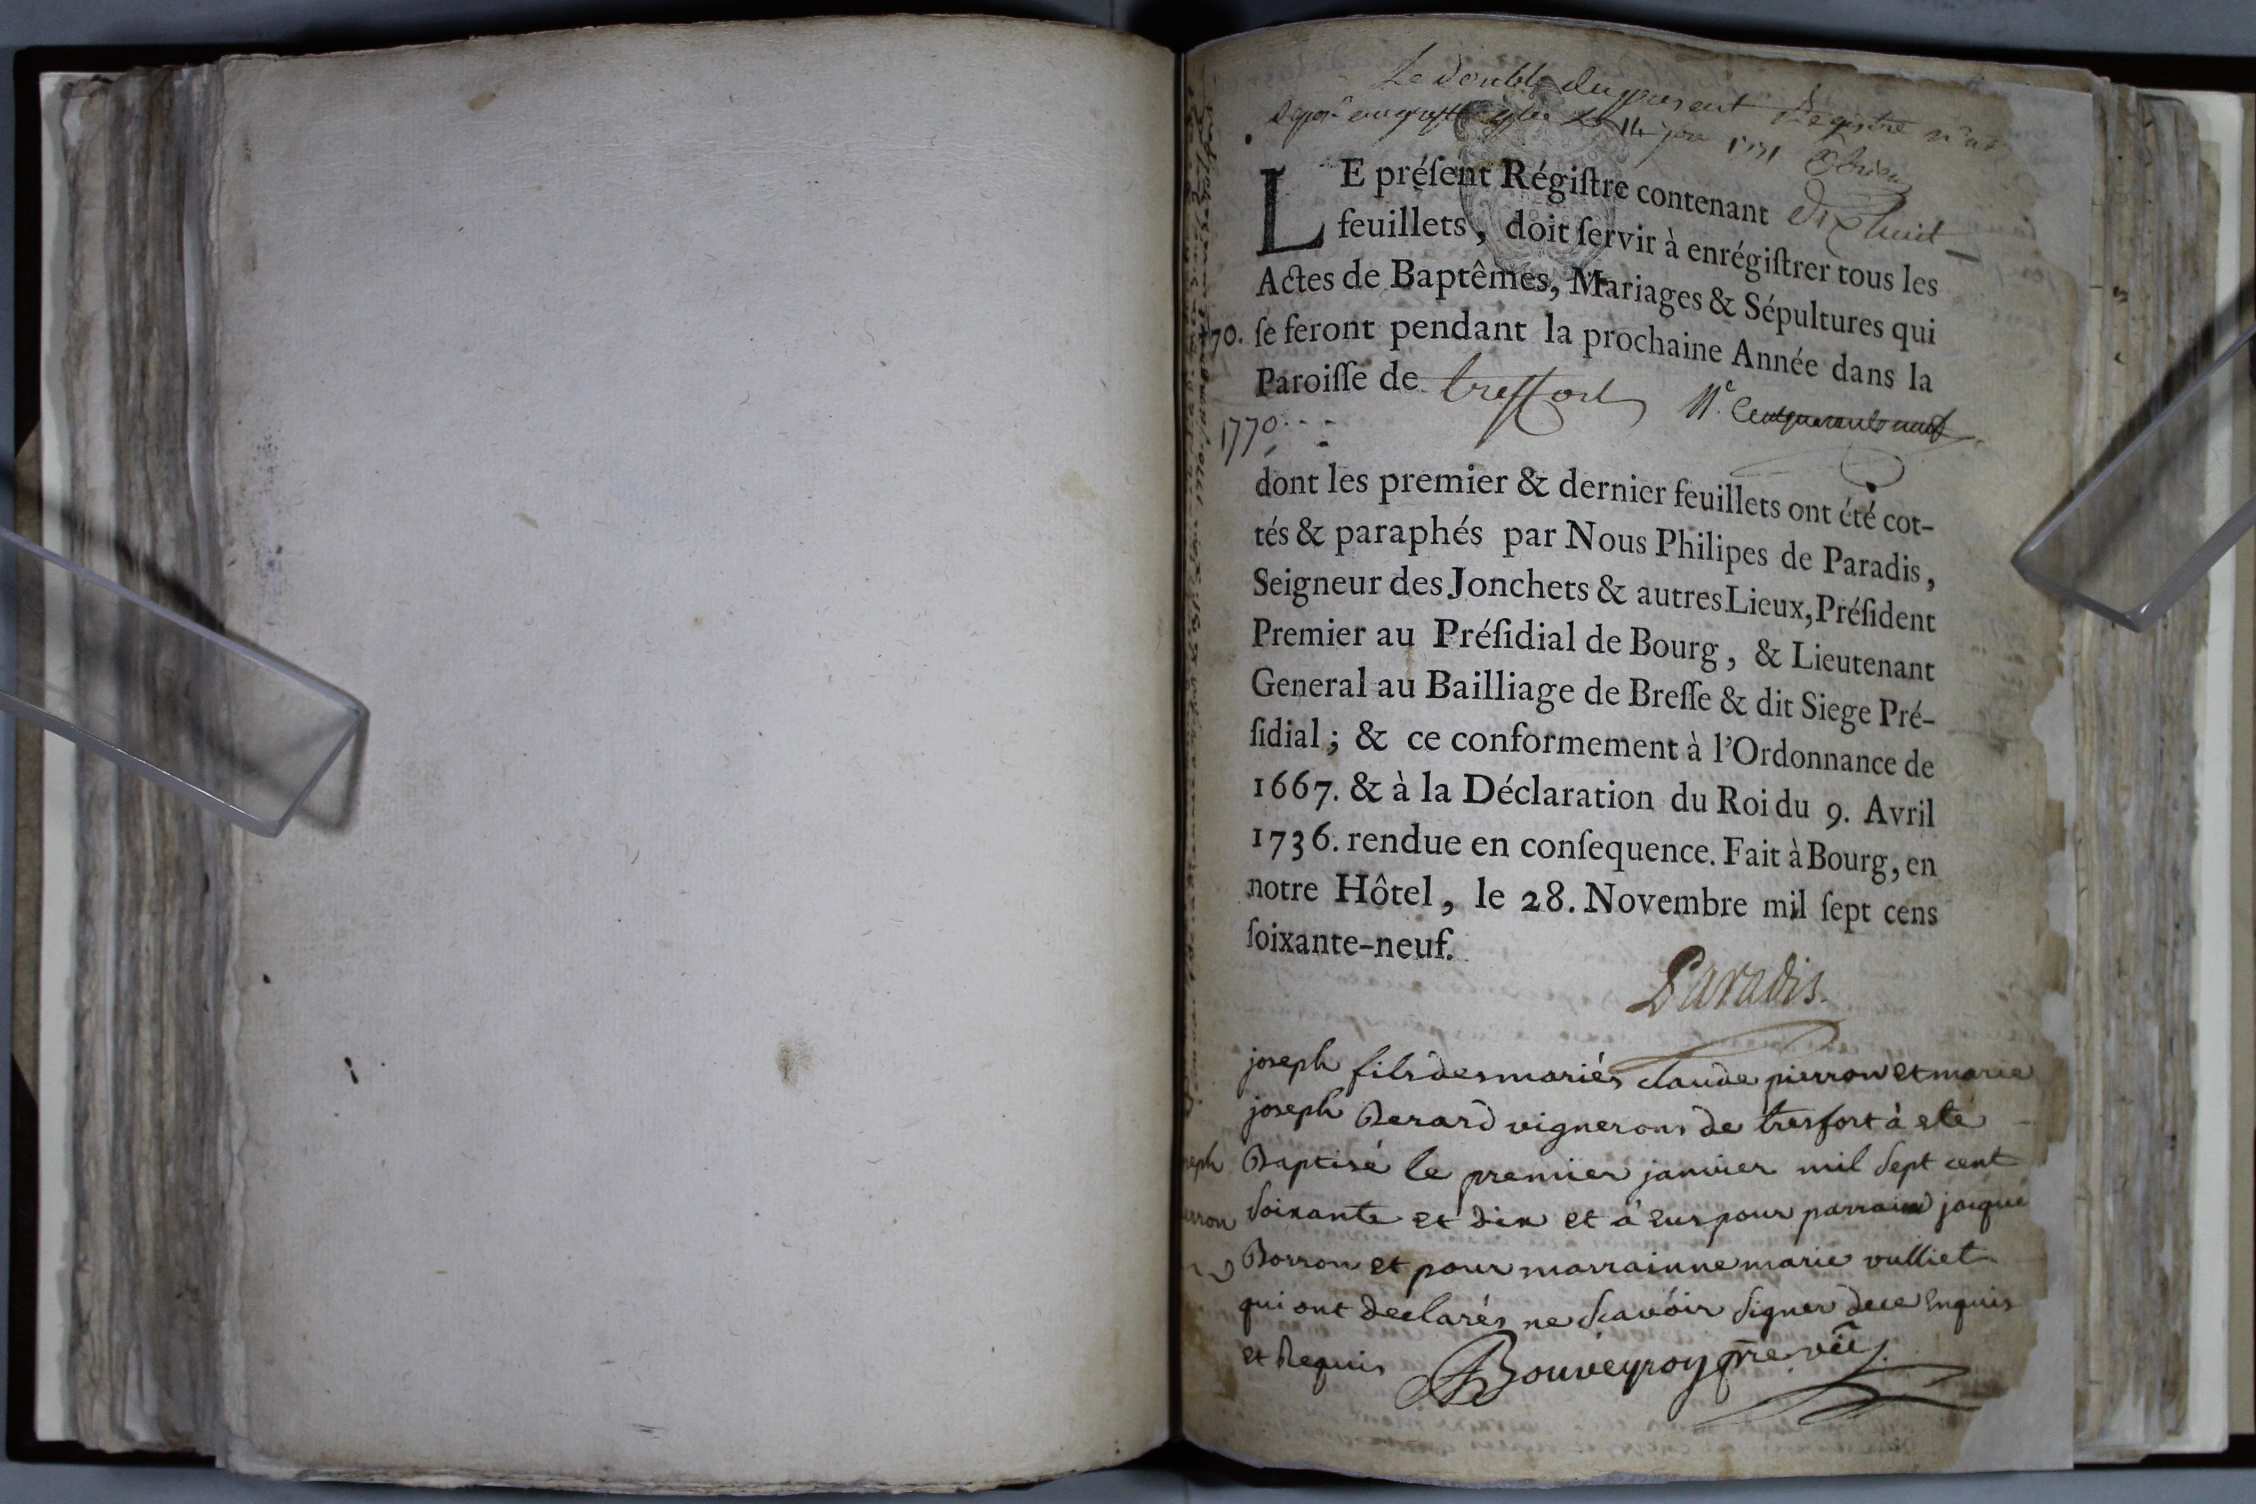 Le double du present Registre
LE préſent Régiſtre contenant dix huit
feuillets, doit ſervir à enrégiſtrer tous les
Actes de Baptêmes, Mariages & Sépultures qui
70. ſe feront pendant la prochaine Année dans la
Paroiſſe de treffort
1770
dont les premier & dernier feuillets ont été cot-
tés & paraphés par Nous Philipes de Paradis,
Seigneur des Jonchets & autres Lieux, Préſident
Premier au Préſidial de Bourg, & Lieutenant
General au Bailliage de Breſſe & dit Siege Pré-
ſidial; & ce conformement à l'Ordonnance de
1667. & à la Déclaration du Roi du 9. Avril
1736. rendue en conſequence. Fait à Bourg, en
notre Hôtel, le 28. Novembre mil ſept cens
ſoixante-neuf.
Paradis.
joseph fils des mariés claude pierron et marie
joseph Berard vignerons de tresfort à eté
Baptisé le premier janvier mil sept cent
soixante et dix et a eus pour parrain jacque
Borron et pour marrainne marie vulliet
qui ont declarés ne scavoir signer de ce enquis
et Requis Bouveyroy pre. vic.